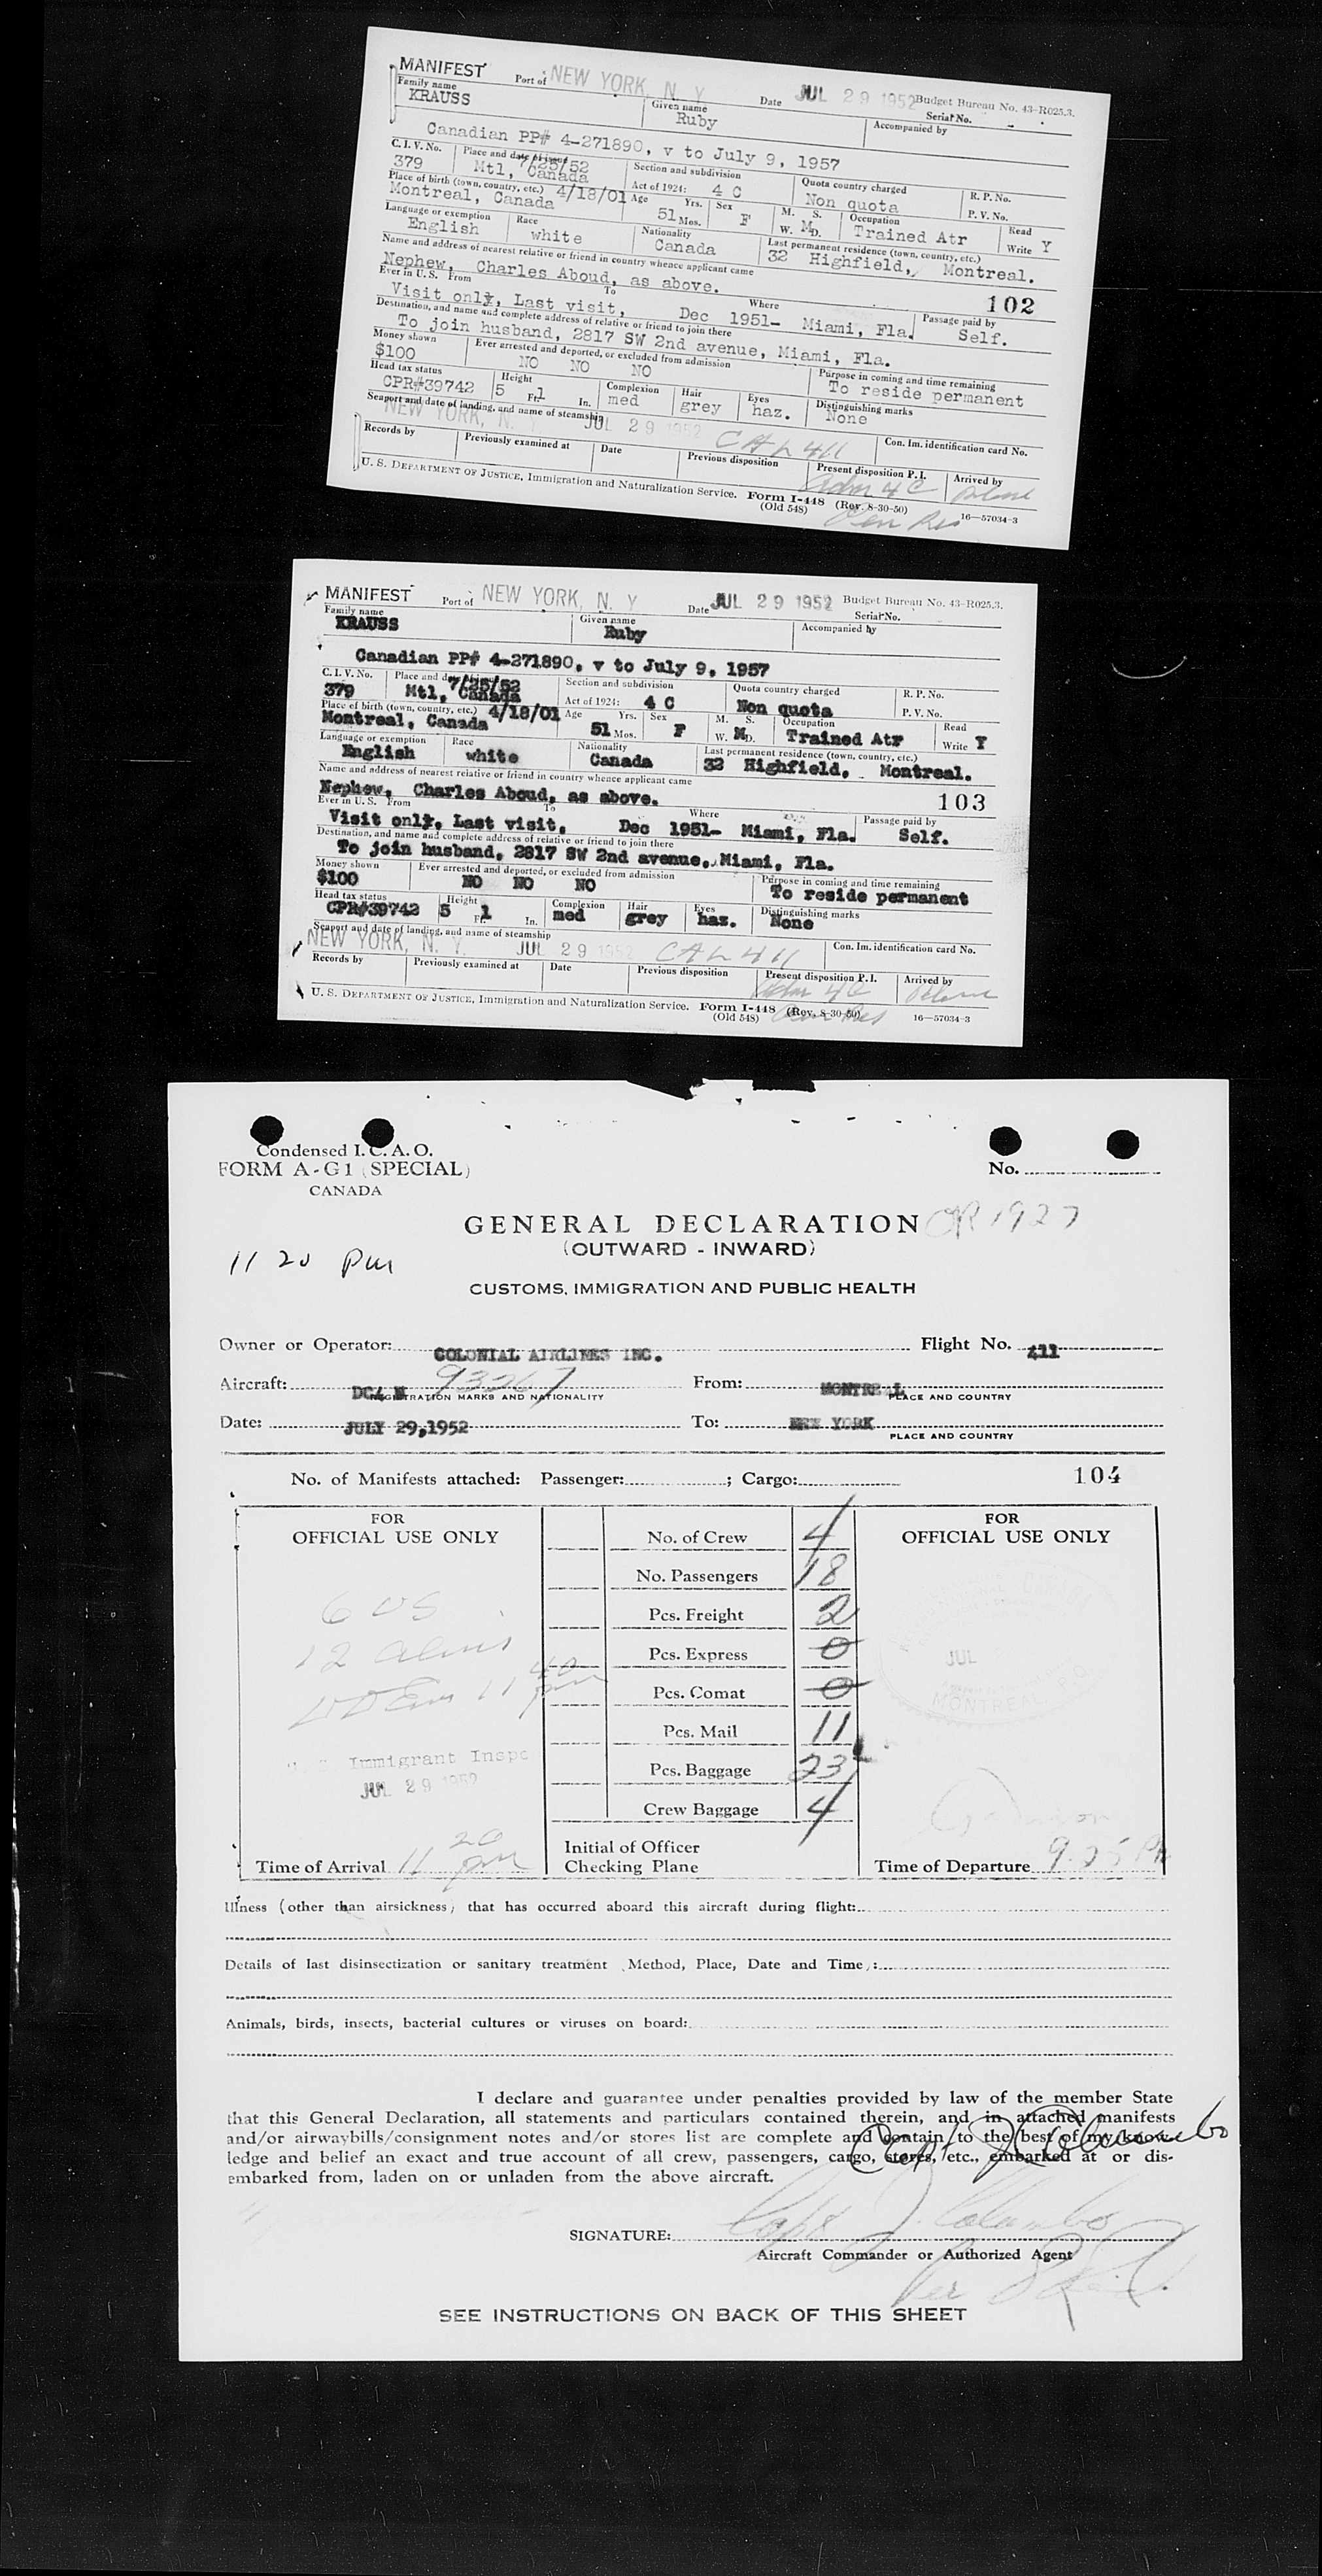 MANIFEST Port of NEW YORK, N. Y. Date JUL 29 1952 Budget Bureau No. 43-R025.3.
Family name Given name Serial No.
KRAUSS Ruby Accompanied by
Canadian PP# 4-271890, v to July 9, 1957
C. I. V. No. Place and date of issue 7/25/52 Section and subdivision Quota country charged R. P. No.
379 Mtl, Canada Act of 1924: 4 C Non quota P. V. No.
Place of birth (town, country, etc.) 4/18/01 Age Yrs. Sex M. S. Occupation Read
Montreal, Canada 51 Mos. F W. M D. Trained Atr Write Y
Language or exemption Race Nationality Last permanent residence (town, country, etc.)
English white Canada 32 Highfield, Montreal.
Name and address of nearest relative or friend in country whence applicant came
Nephew, Charles Aboud, as above. 102
Ever in U. S. From To Where Passage paid by
Visit only, Last visit, Dec 1951- Miami, Fla. Self.
Destination, and name and complete address of relative or friend to join there
To join husband, 2817 SW 2nd avenue, Miami, Fla.
Money shown Ever arrested and deported, or excluded from admission Purpose in coming and time remaining
$100 NO NO NO To reside permanent
Head tax status Height Complexion Hair Eyes Distinguishing marks
CPR#39742 5 Ft. 1 In. med grey haz. None
Seaport and date of landing, and name of steamship Con. Im. identification card No.
NEW YORK, N. Y. JUL 29 1952 CAL 411
Records by Previously examined at Date Previous disposition Present disposition P. I. Arrived by
Adm 4C
U. S. DEPARTMENT OF JUSTICE, Immigration and Naturalization Service. Form I-448 (Rev. 8-30-50) 16—57034-3
(Old 548) Perm Res
MANIFEST Port of NEW YORK, N. Y. Date JUL 29 1952 Budget Bureau No. 43-R025.3.
Family name Given name Serial No.
KRAUSS Ruby Accompanied by
Canadian PP# 4-271890, v to July 9, 1957
C. I. V. No. Place and 7/25/52 Section and subdivision Quota country charged R. P. No.
379 Mtl, Canada Act of 1924: 4 C Non quota P. V. No.
Place of birth (town, country, etc.) 4/18/01 Age Yrs. Sex M. S. Occupation Read
Montreal, Canada 51 Mos. F W. M D. Trained Atr Write Y
Language or exemption Race Nationality Last permanent residence (town, country, etc.)
English white Canada 32 Highfield, Montreal.
Name and address of nearest relative or friend in country whence applicant came
Nephew, Charles Aboud, as above. 103
Ever in U. S. From To Where Passage paid by
Visit only, Last visit, Dec 1951- Miami, Fla. Self.
Destination, and name and complete address of relative or friend to join there
To join husband, 2817 SW 2nd avenue, Miami, Fla.
Money shown Ever arrested and deported, or excluded from admission Purpose in coming and time remaining
$100 NO NO NO To reside permanent
Head tax status Height Complexion Hair Eyes Distinguishing marks
CPR#39742 5 Ft. 1 In. med grey haz. None
Seaport and date of landing, and name of steamship Con. Im. identification card No.
NEW YORK, N. Y. JUL 29 1952 CAL 411
Records by Previously examined at Date Previous disposition Present disposition P. I. Arrived by
Adm 4C
U. S. DEPARTMENT OF JUSTICE, Immigration and Naturalization Service. Form I-448 (Rev. 8-30-50) 16—57034-3
(Old 548) Perm Res
Condensed I. C. A. O.
FORM A-G1 (SPECIAL) No.
CANADA
GENERAL DECLARATION OR 1927
(OUTWARD - INWARD)
11 20 pm
CUSTOMS, IMMIGRATION AND PUBLIC HEALTH
Owner or Operator: COLONIAL AIRLINES INC. Flight No. 411
Aircraft: DC4 N 93267 From: MONTREAL
REGISTRATION MARKS AND NATIONALITY PLACE AND COUNTRY
Date: JULY 29,1952 To: NEW YORK
PLACE AND COUNTRY
No. of Manifests attached: Passenger: ; Cargo: 104
FOR OFFICIAL USE ONLY
No. of Crew 4
FOR OFFICIAL USE ONLY
No. Passengers 18
6 US Pcs. Freight 2
12 aliens Pcs. Express 0
11 40 pm Pcs. Comat 0
JUL
MONTREAL, P.Q.
Pcs. Mail 11
Immigrant Inspe Pcs. Baggage 23
JUL 29 1952 Crew Baggage 4
Initial of Officer
Time of Arrival 11 20 pm Checking Plane Time of Departure 9.25 PM
Illness (other than airsickness) that has occurred aboard this aircraft during flight:
Details of last disinsectization or sanitary treatment (Method, Place, Date and Time):
Animals, birds, insects, bacterial cultures or viruses on board:
I declare and guarantee under penalties provided by law of the member State
that this General Declaration, all statements and particulars contained therein, and in attached manifests
and/or airwaybills/consignment notes and/or stores list are complete and contain to the best of my know-
ledge and belief an exact and true account of all crew, passengers, cargo, stores, etc., embarked at or dis-
embarked from, laden on or unladen from the above aircraft.
Capt J Columbo
SIGNATURE: Capt J. Columbo
Aircraft Commander or Authorized Agent
Per
SEE INSTRUCTIONS ON BACK OF THIS SHEET